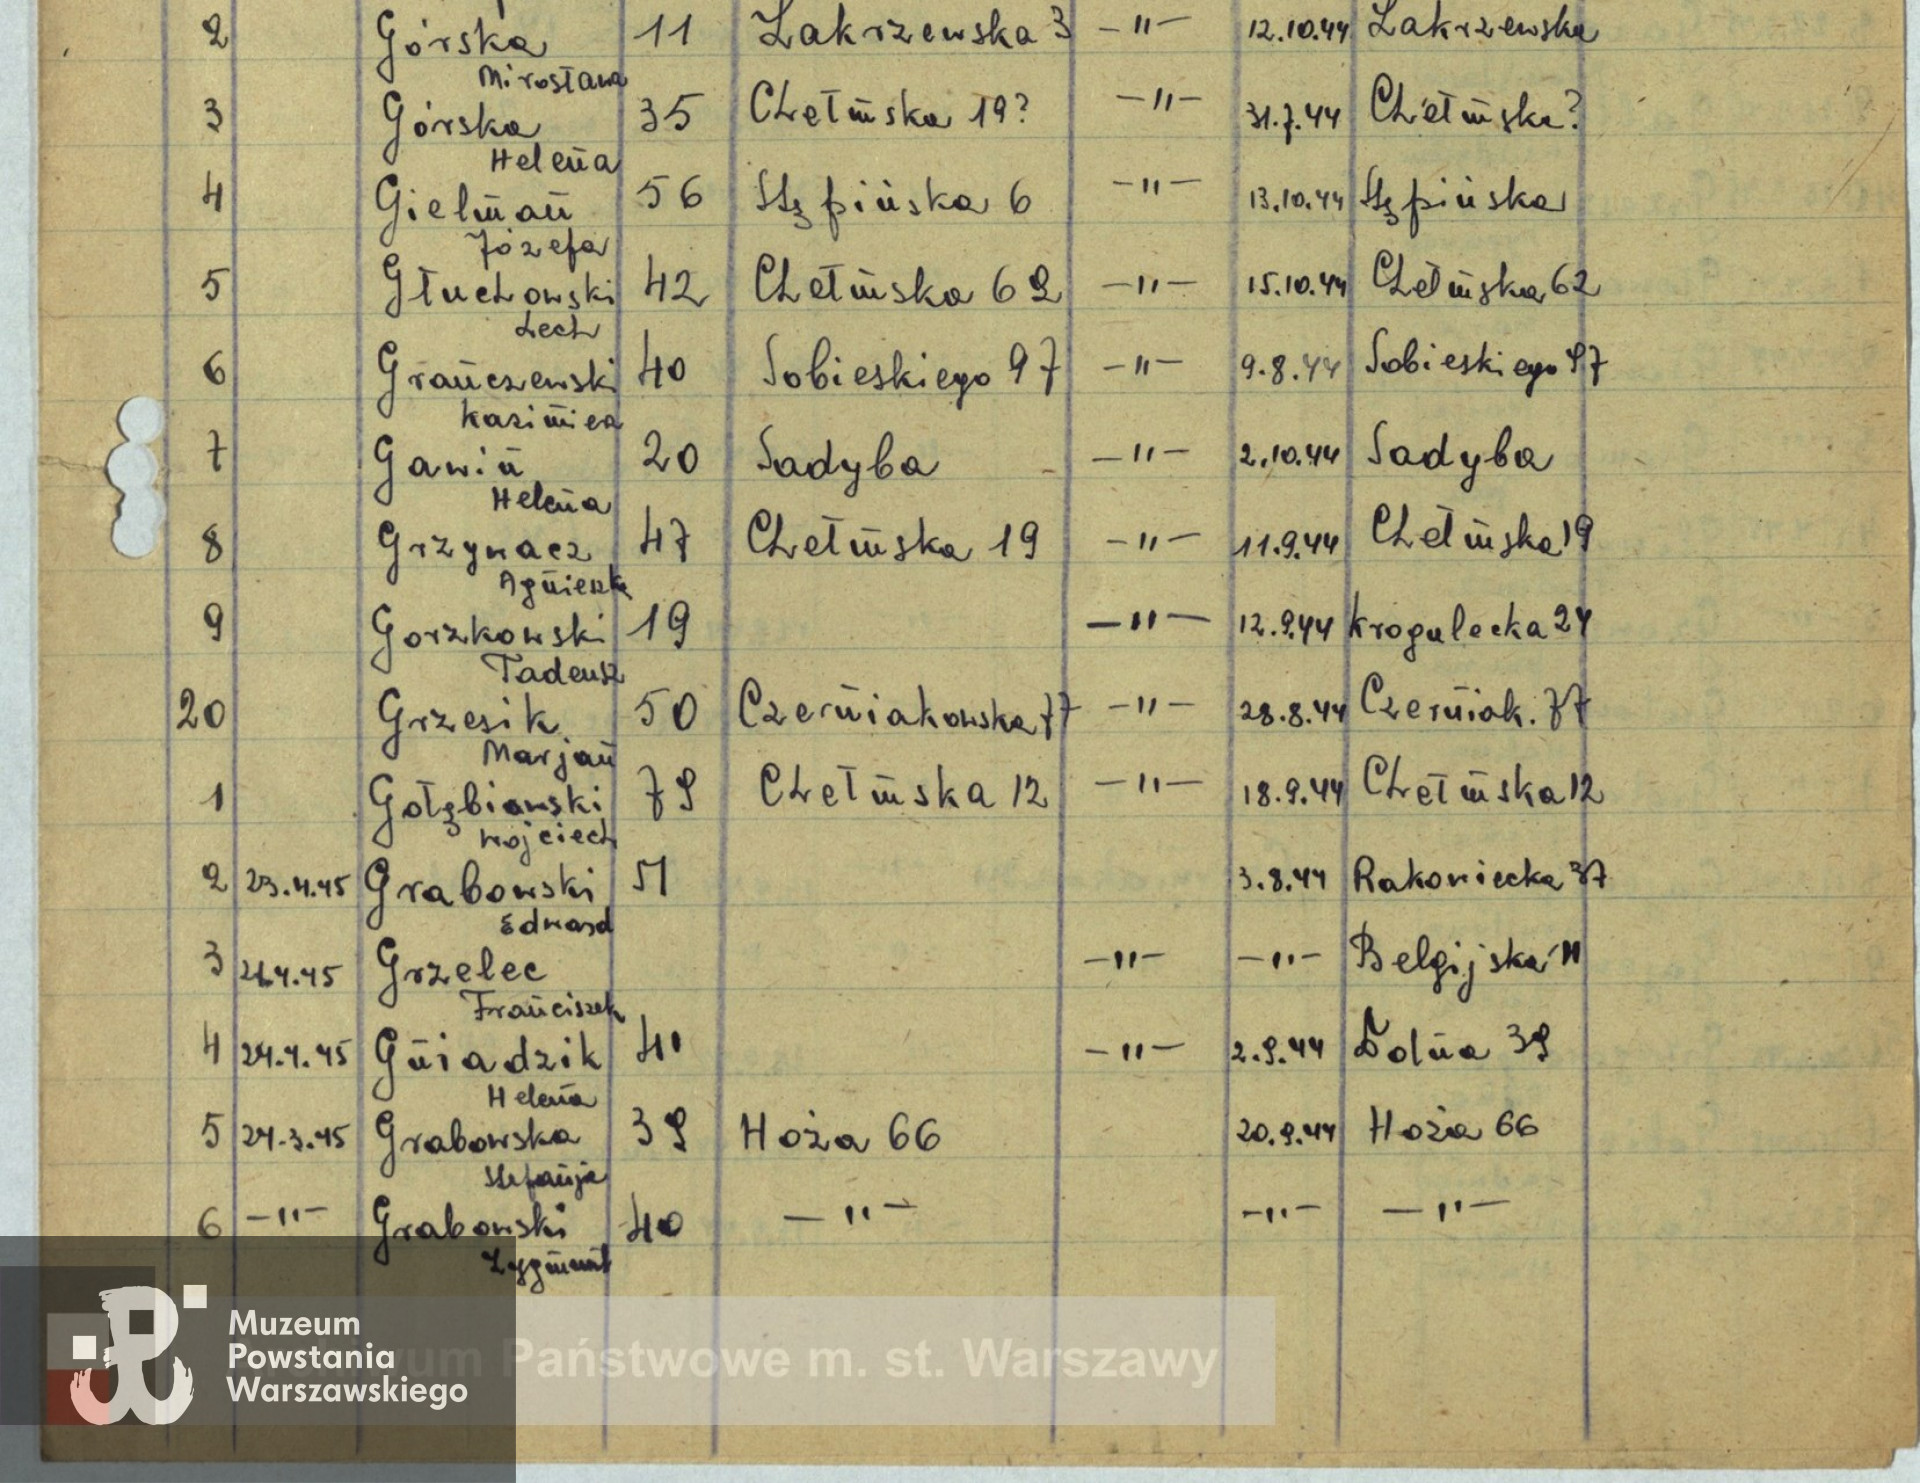 2 Górska 11 Zakrzewska 3 -"- 12.10.44 Zakrzewska
Mirosława
3 Górska 35 Chełmska 19? -"- 31.7.44 Chełmska?
Helena
4 Gielman 56 Stępińska 6 -"- 13.10.44 Stępińska
Józefa
5 Głuchowski 42 Chełmska 62 -"- 15.10.44 Chełmska 62
Lech
6 Grańczewski 40 Sobieskiego 97 -"- 9.8.44 Sobieskiego 97
Kazimierz
7 Gawin 20 Sadyba -"- 2.10.44 Sadyba
Helena
8 Grzywacz 47 Chełmska 19 -"- 11.9.44 Chełmska 19
Agnieszka
9 Gorzkowski 19 -"- 12.9.44 Krogulecka 24
Tadeusz
20 Grzesik 50 Czerniakowska 77 -"- 28.8.44 Czerniak. 77
Marjan
1 Gołębiowski 79 Chełmska 12 -"- 18.9.44 Chełmska 12
Wojciech
2 23.4.45 Grabowski 51 3.8.44 Rakowiecka 37
Edward
3 21.4.45 Grzelec -"- -"- Belgijska 11
Franciszek
4 24.4.45 Gniadzik 41 -"- 2.9.44 Dolna 39
Helena
5 24.3.45 Grabowska 39 Hoża 66 20.9.44 Hoża 66
Stefanja
6 -"- Grabowski 40 -"- -"- -"-
Zygmunt
Muzeum
Powstania
Warszawskiego
Państwowe m. st. Warszawy